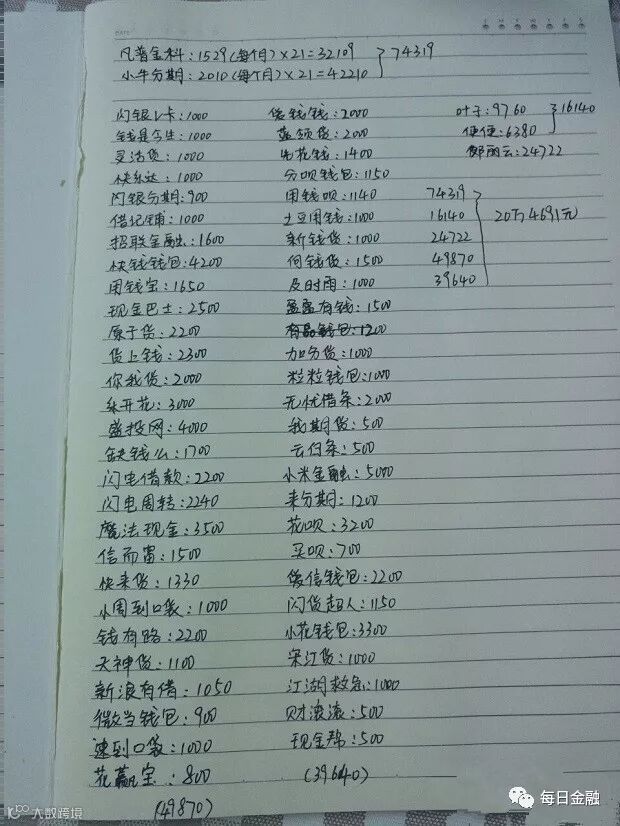 DATE
凡普金科:1529(每个月)×21=32109
小牛分期:2010(每个月)×21=42210
}74319
闪银V卡:1000 借钱钱:2000 叶子:9760
钱是今生:1000 蓝领贷:2000 便便:6380 }16140
灵活贷:1000 先花钱:1400 邹丽云:24722
快乐达:1000 分呗钱包:1150
闪银分期:900 用钱呗:1140 74319
借记铺:1000 土豆用钱:1000 16140 20万4691元
招联金融:1600 新钱贷:1000 24722
快钱钱包:4200 何钱贷:1500 49870
用钱宝:1650 及时雨:1000 39640
现金巴士:2500 盈盈有钱:1500
原子贷:2200 有品钱包:1200
贷上钱:2300 加分贷:1000
你我贷:2000 粒粒钱包:1000
乐开花:3000 无忧借条:2000
盛投网:4000 我期贷:500
缺钱么:1700 云白条:500
闪电借款:2200 小米金融:5000
闪电周转:2240 来分期:1200
魔法现金:3500 花呗:3200
信而富:1500 买呗:700
快来贷:1330 爱信钱包:2200
小周到口袋:1000 闪贷超人:1150
钱有路:2200 小花钱包:3300
天神贷:1100 宋江贷:1000
新浪有借:1050 江湖救急:1000
微当钱包:900 财滚滚:500
速到口袋:1000 现金帮:500
花赢宝:800 (39640)
(49870)
大数跨境
每日金融